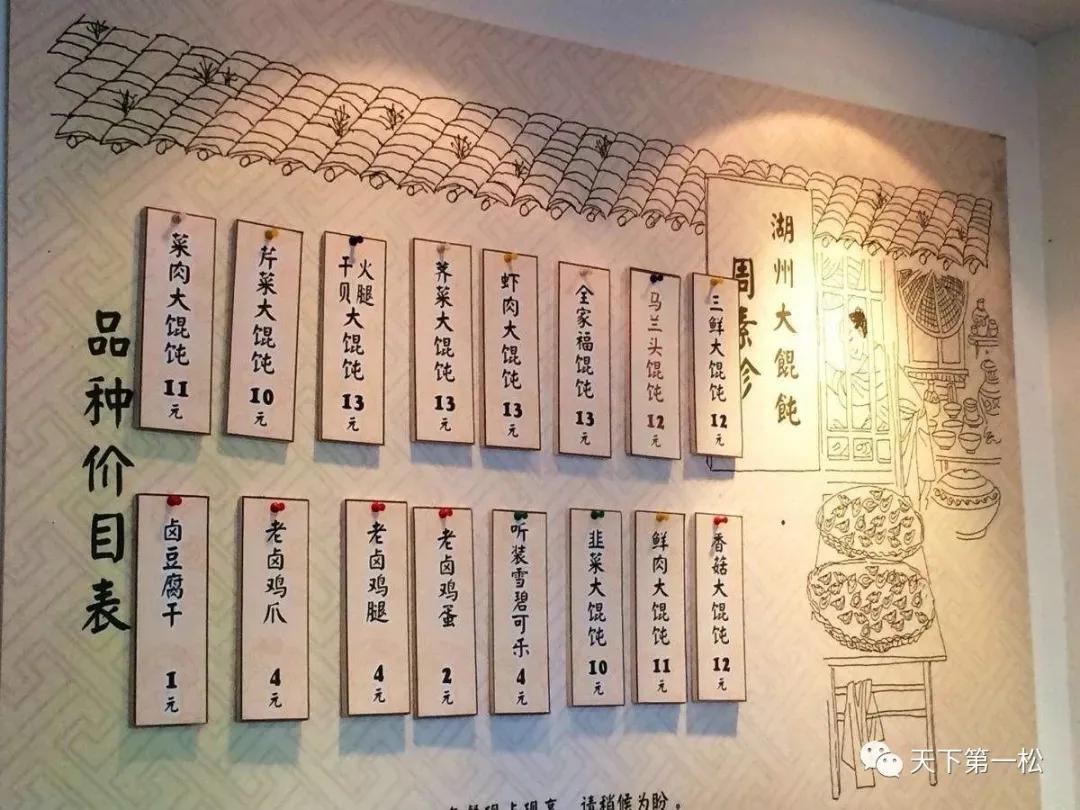 品种价目表
菜肉大馄饨 11元
芹菜大馄饨 10元
火腿干贝大馄饨 13元
荠菜大馄饨 13元
虾肉大馄饨 13元
全家福馄饨 13元
马兰头馄饨 12元
三鲜大馄饨 12元
湖州大餛飩
周素珍
卤豆腐干 1元
老卤鸡爪 4元
老卤鸡腿 4元
老卤鸡蛋 2元
听装雪碧可乐 4元
韭菜大馄饨 10元
鲜肉大馄饨 11元
香菇大馄饨 12元
请稍候为盼。
天下第一松